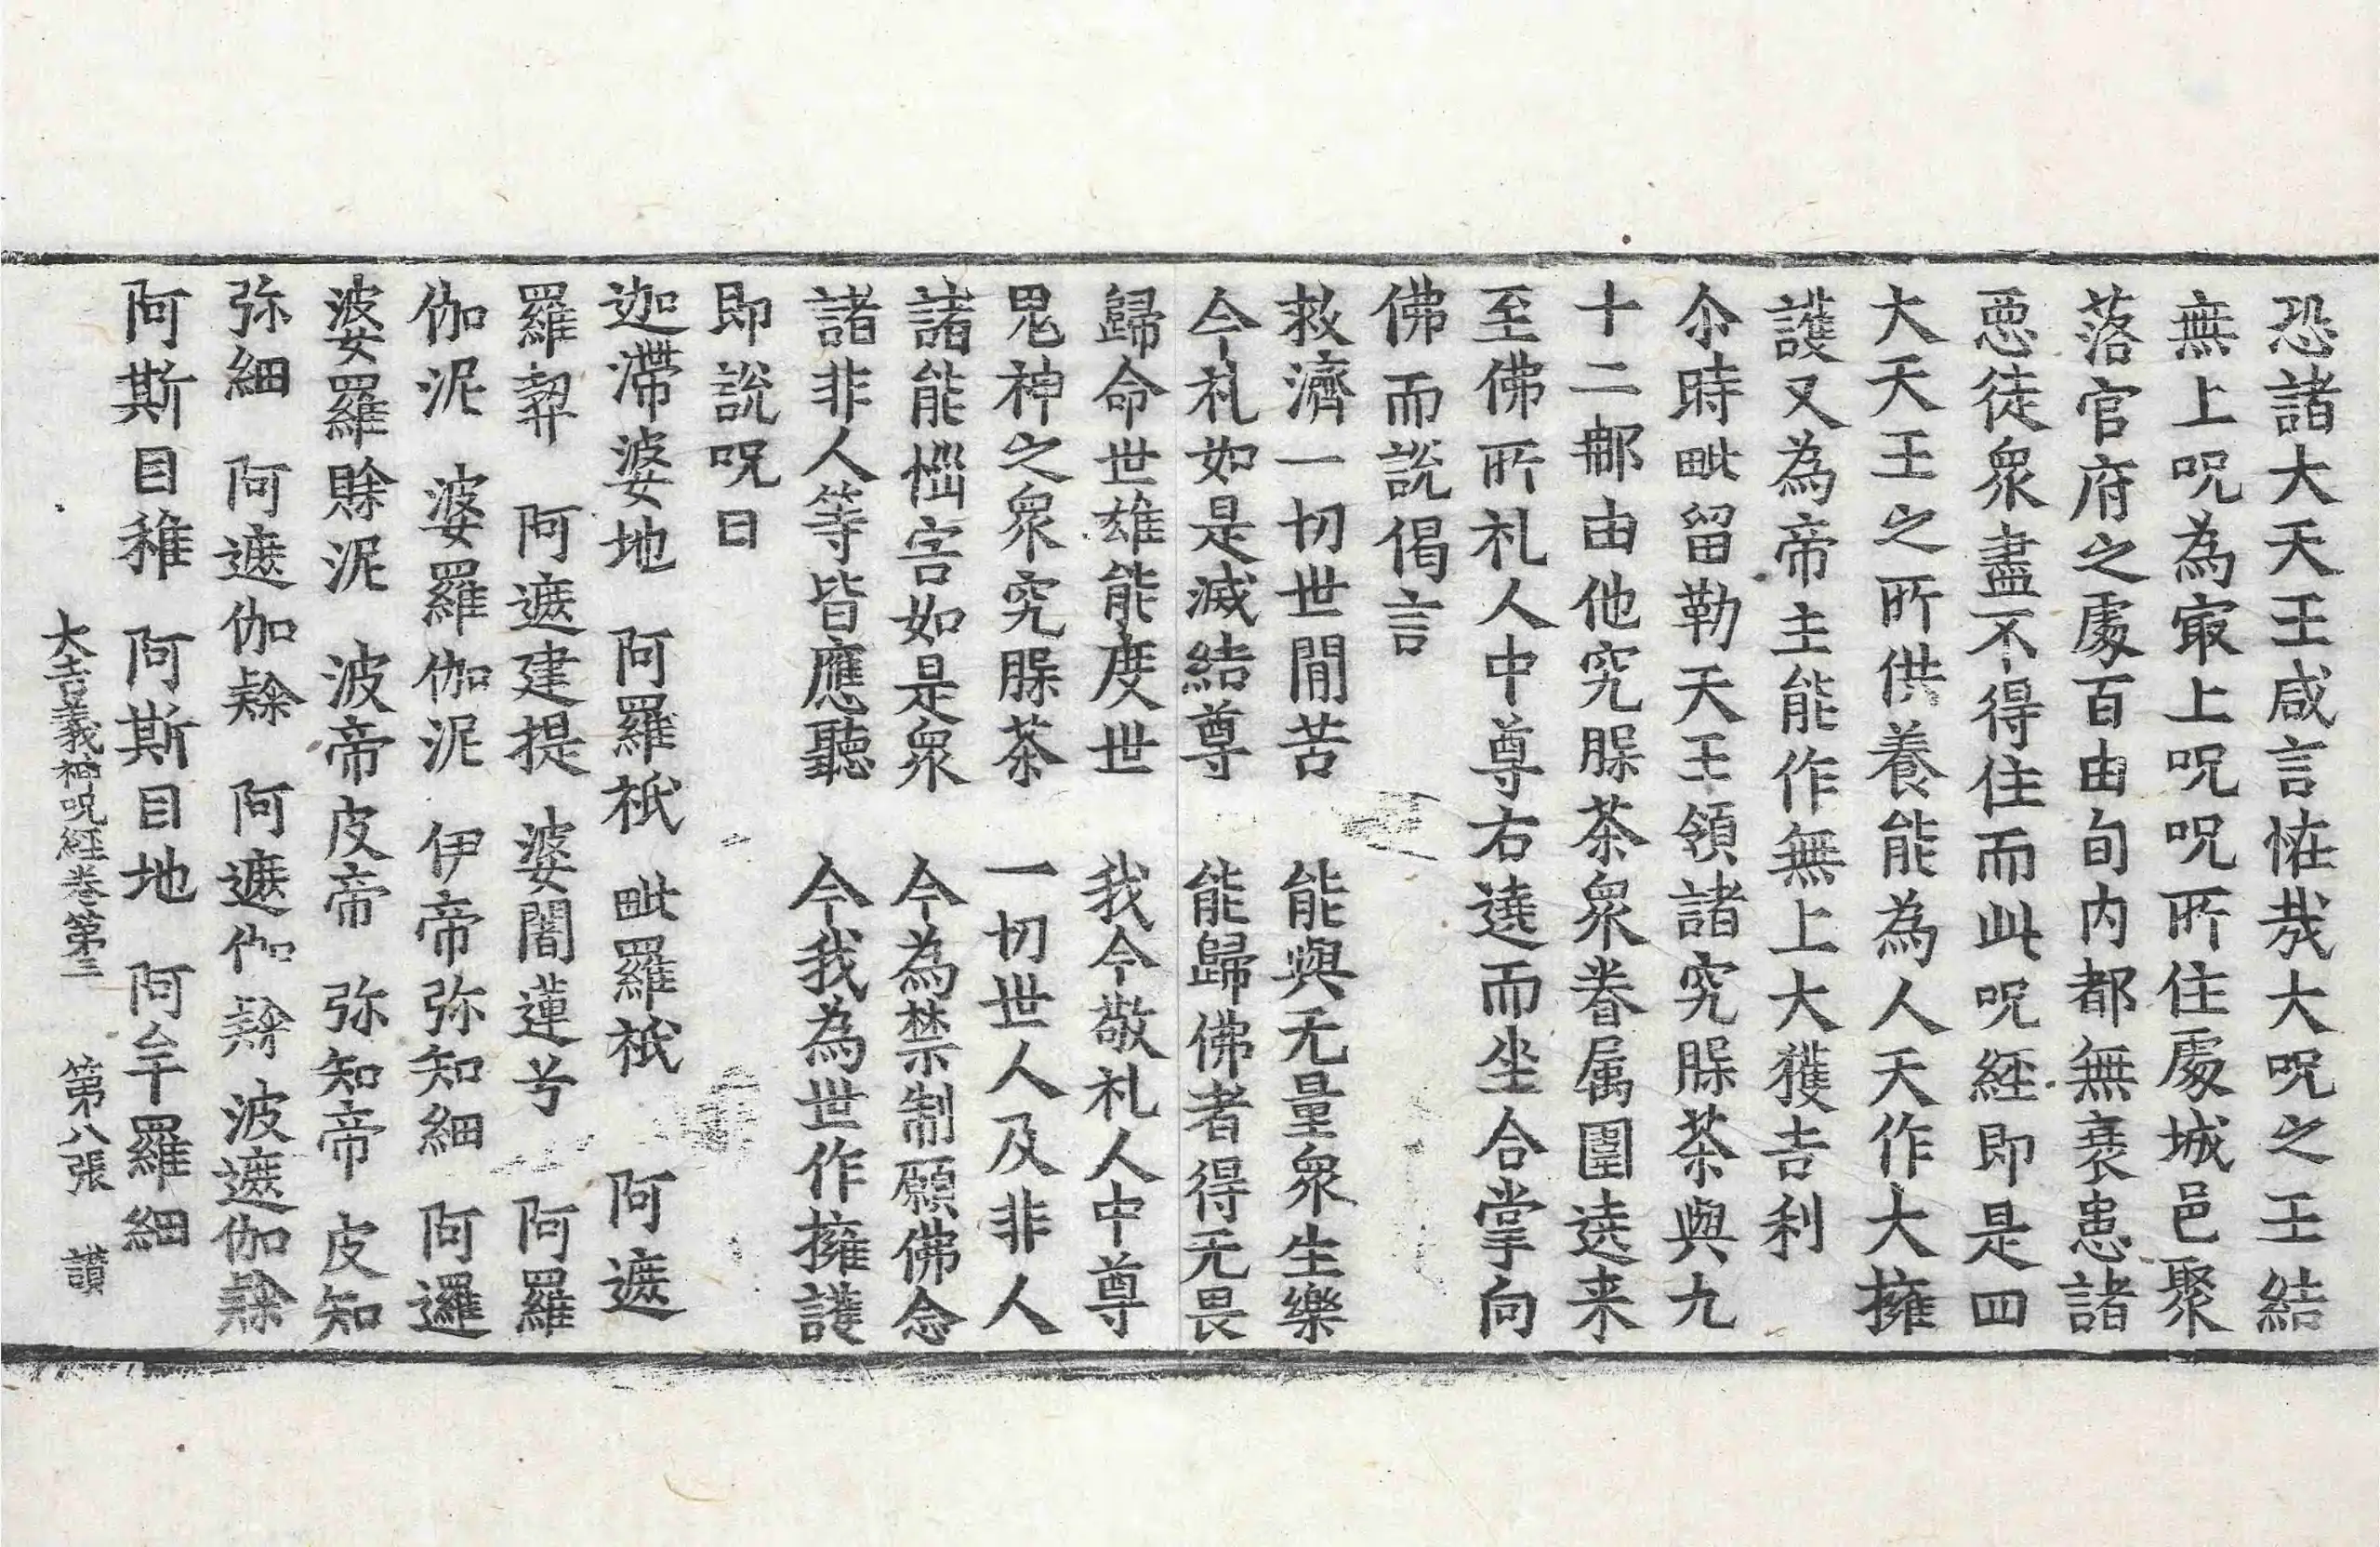 恐諸大天王咸言恠㢤大呪之王結
無上呪為㝡上呪呪所住處城邑聚
落官府之處百由旬内都無衰患諸
惡徒衆盡不得住而此呪経即是四
大天王之所供養能為人天作大擁
護又為帝主能作無上大獲吉利
尒時毗留勒天王領諸究脲茶與九
十二郍由他究脲茶衆眷属圍遶来
至佛所礼人中尊右遶而坐合掌向
佛而說偈言
救濟一切世間苦　能與无量衆生樂
今礼如是滅結尊　能歸佛者得无畏
歸命世雄能度世　我今敬礼人中尊
鬼神之衆究脲茶　一切世人及非人
諸能惱害如是衆　今為禁制願佛念
諸非人等皆應聽　今我為世作擁護
即說呪曰
迦滯婆地　阿羅祇　毗羅祇　阿遮
羅㝹　阿遮建提　婆闍蓮兮　阿羅
伽泥　婆羅伽泥　伊帝弥知細　阿邏
婆羅賖泥　波帝皮帝　弥知帝　皮知
弥細　阿遮伽隸　阿遮伽隸　波遮伽隸
阿斯目稚　阿斯目地　阿牟羅細
大吉義神呪経卷第三　第八張　讃